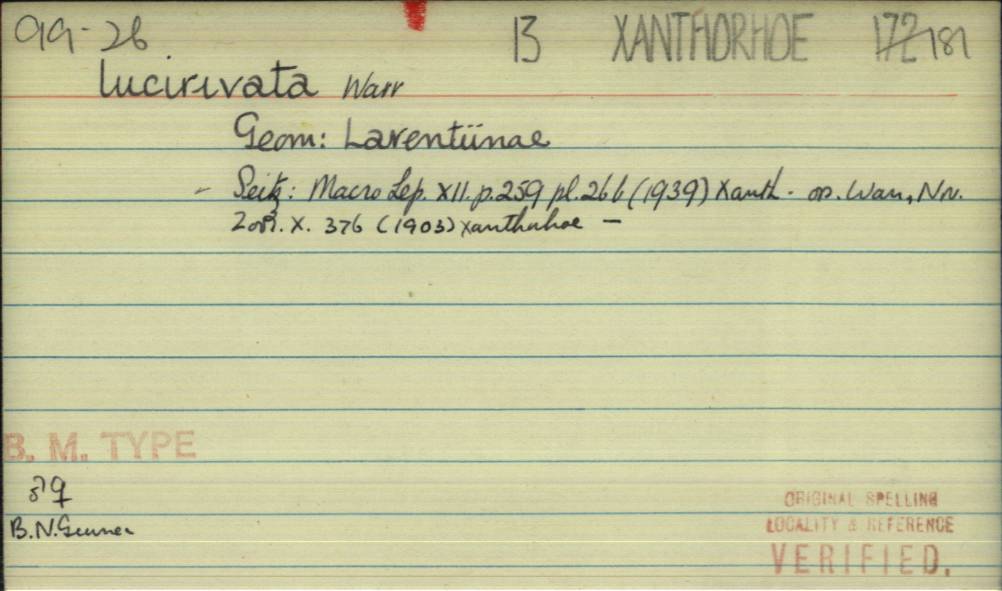 99-26 13 XANTHORHOE 172 181
lucirivata Warr
Geom: Larentiinae
- Seitz: Macro Lep. XII. p.259 pl.26 b (1939) Xanth. op. Warr, Nov.
Zool. X. 376 (1903) Xanthorhoe —
B. M. TYPE
♂ ♀
B.N.Guinea
ORIGINAL SPELLING
LOCALITY & REFERENCE
VERIFIED.